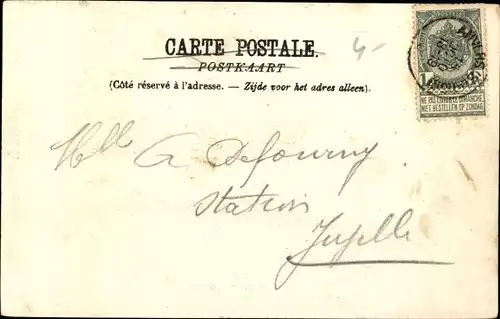 CARTE POSTALE.
4-
POSTKAART
(Côté réservé à l'adresse. — Zijde voor het adres alleen).
1
NE PAS LIVRER LE DIMANCHE
NIET BESTELLEN OP ZONDAG
Mlle A Defourny
Station
Jupelle